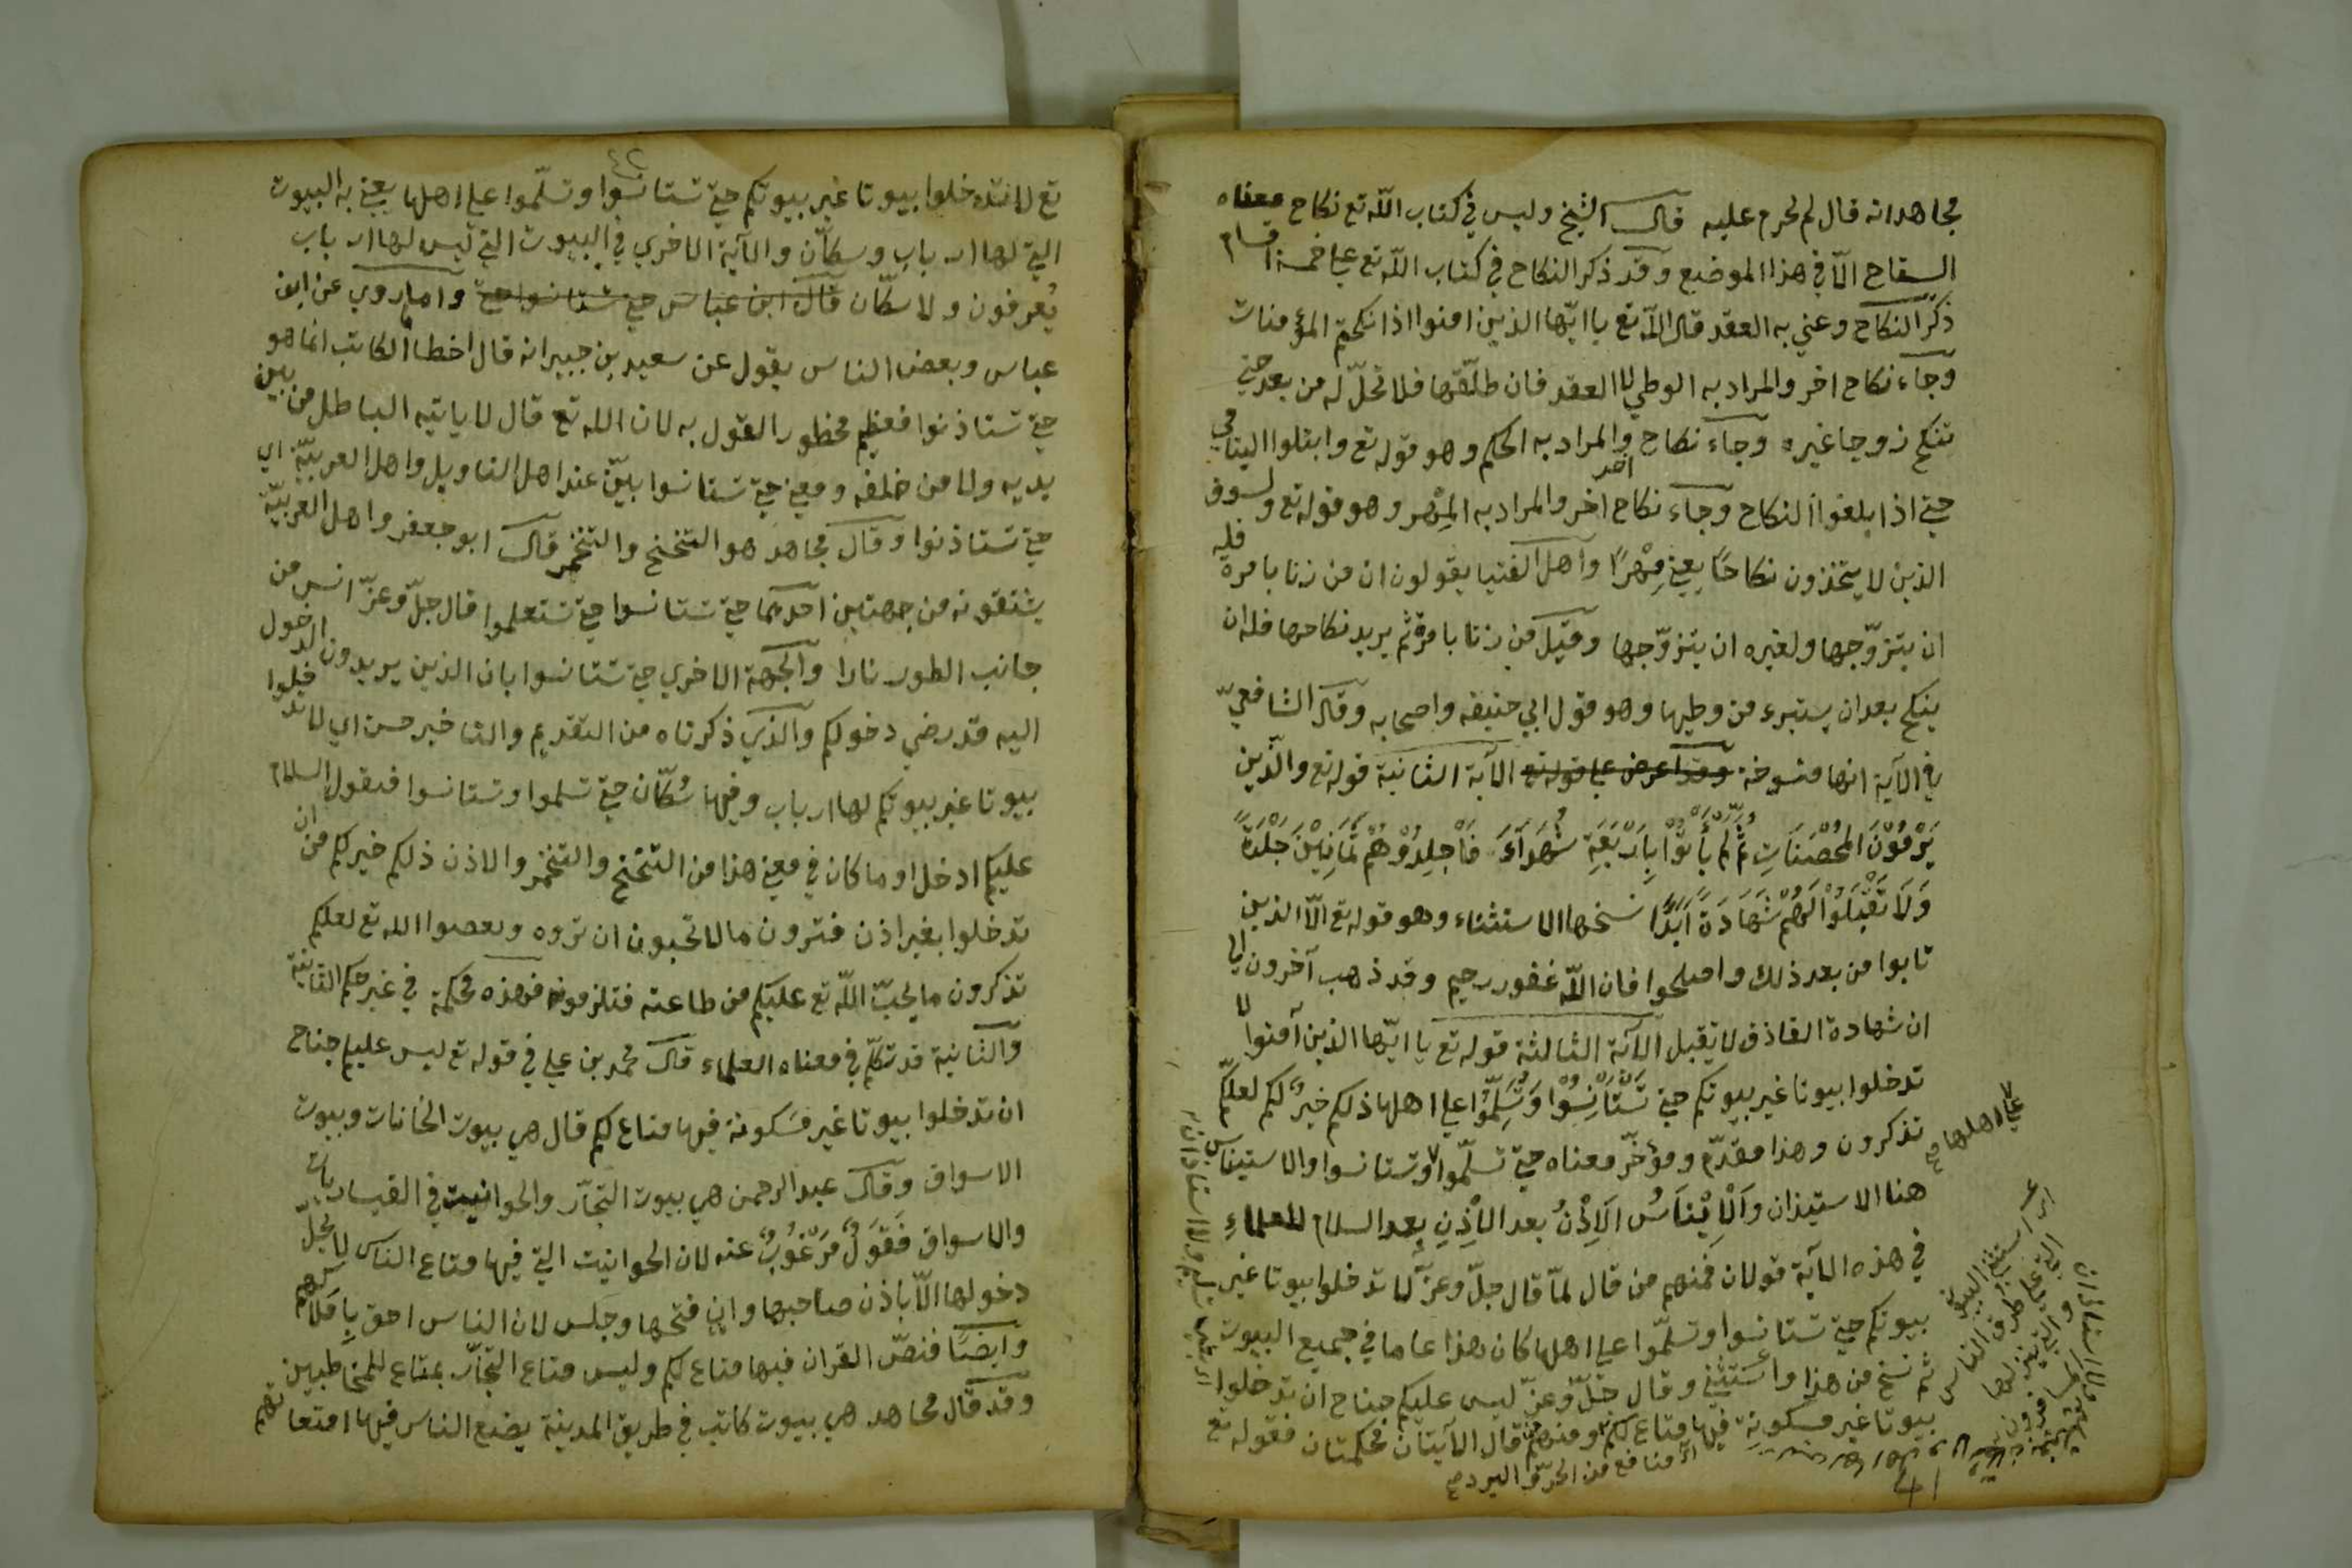 مجاهد انه قال لم يحرم عليه قال الشيخ وليس في كتاب الله تع نكاح معناه
السفاح الّا في هذا الموضع وقد ذكر النكاح في كتاب الله تع علي خمسة اقسام
ذكر النكاح وعني به العقد قال الله تع يا ايّها الذين امنوا اذا نكحتم المؤمنات
وجاء نكاح اخر والمراد به الوطي لا العقد فان طلّقها فلا تحلّ له من بعد حتي
تنكح زوجا غيره وجاء نكاح اخر والمراد به الحكم وهو قوله تع وابتلوا اليتامي
حتي اذا بلغوا النكاح وجاء نكاح اخر والمراد به المهر وهو قوله تع
الذين لا يتخذون نكاحًا يعني مهرًا واهل الفتيا يقولون ان من زنا بامرة فله
ان يتزوّجها ولغيره ان يتزوّجها وقيل من زنا بامرة ثم يريد نكاحها فله ان
ينكح بعد ان يستبرء من وطيها وهو قول ابي حنيفه واصحابه وقال الشافعيّ
في الآية انها منسوخة وقد اعرض علي قوله تع الآية الثانية قوله تع والّذين
يَرْمُوْنَ المُحْصَنَاتِ ثُمَّ لَمْ يَأْتُوْا بِاَرْبَعَةِ شُهَدَآءَ فَاْجلِدُوْهُمْ ثَمَانِيْنَ جَلْدَةً
وَلَا تَقْبَلُوْا لَهُمْ شَهَادَةً اَبَدًا نسخها الاستثناء وهو قوله تع الّا الذين
تابوا من بعد ذلك واصلحوا فان الله غفور رحيم وقد ذهب آخرون الي
ان شهادة القاذف لا تقبل الآية الثالثة قوله تع يا ايّها الذين آمنوا لا
تدخلوا بيوتا غير بيوتكم حتي تَسْتَاْنِسُوْا وَتُسَلِّمُوْا علي اهلها ذلكم خيرٌ لكم لعلكم
تذكرون وهذا مقدّم ومؤخّر معناه حتي تسلّموا وتستانسوا والاستيناس
علي اهلها صح
هنا الاستيذان وَاَلْاِيْنَاَسُ اَلاِذْنُ بعد الْاَذِنِ بعد السلام للعلماءِ
في هذه الآية قولان فمنهم من قال لمّا قال جلّ وعزّ لا تدخلوا بيوتا غير
بيوتكم حتي تستانسوا وتسلّموا علي اهلها كان هذا عاما في جميع البيوت
ثم نسخ من هذا واستثني وقال جلّ وعزّ ليس عليكم جناح ان تدخلوا
بيوتا غير مسكونةِ فيها متاع لكم ومنهم من قال الآيتان محكمتان فقوله تع
منافع من الحرّ والبرد صح
41
٤٢
تع لا تدخلوا بيوتا غير بيوتكم حتي تستانسوا وتسلّموا علي اهلها يعني به البيوت
التي لها ارباب وسكّان والآية الاخري في البيوت التي ليس لها ارباب
يُعرفون ولا سكّان قال ابن عباس حتي تستانسوا حتي واما روي عن ابن
عباس وبعض الناس يقول عن سعيد بن جبير انه قال اخطا الكاتب انما هو
حتي تستاذنوا فعظيم محظور القول به لان الله تع قال لا ياتيه الباطل من بين
يديه ولا من خلفه ومعني حتي تستانسوا بيّن عند اهل التاويل واهل العربيّة اي
حتي تستاذنوا وقال مجاهد هو التنحنح والتنخم قال ابو جعفر واهل العربيّة
يشتقونه من جهتين احدهما حتي تستانسوا حتي تستعلموا قال جلّ وعزّ انس من
جانب الطور نارا والجهة الاخري حتي تستانسوا بان الذين يريدون الدخول
اليه قد رضي دخولكم والذي ذكرناه من التقديم والتاخير حسن اي لا تدخلوا
بيوتا غير بيوتكم لها ارباب وفيها سُكّان حتي تسلموا وتستانسوا فيقول السلام
عليكم ادخل او ما كان في معني هذا من التنحنح والتنخم والاذن ذلكم خير لكم من ان
تدخلوا بغير اذن فترون ما لا تحبون ان تروه وتعصوا الله تع لعلكم
تذكرون ما يحبّ الله تع عليكم من طاعته فتلزموه فهذه محكمة في غير حكم الثانية
والثانية قد تكلّم في معناه العلماء قال محمد بن علي في قوله تع ليس عليكم جناح
ان تدخلوا بيوتا غير مسكونة فيها متاع لكم قال هي بيوت الخانات وبيوت
الاسواق وقال عبد الرحمن هي بيوت التجّار والحوانيت في القيساريات
والاسواق فَقَوْلٌ مَرْغُوْبٌ عنه لان الحوانيت التي فيها متاع الناس لا يحلّ
دخولها الّا باذن صاحبها وان فتحها وجلس لان الناس احق بِاَملاكهم
وايضًا فنصّ القران فيها متاع لكم وليس متاع التجّار بمتاع للمخاطبين
وقد قال مجاهد هي بيوت كانت في طريق المدينة يضع الناس فيها امتعاتهم